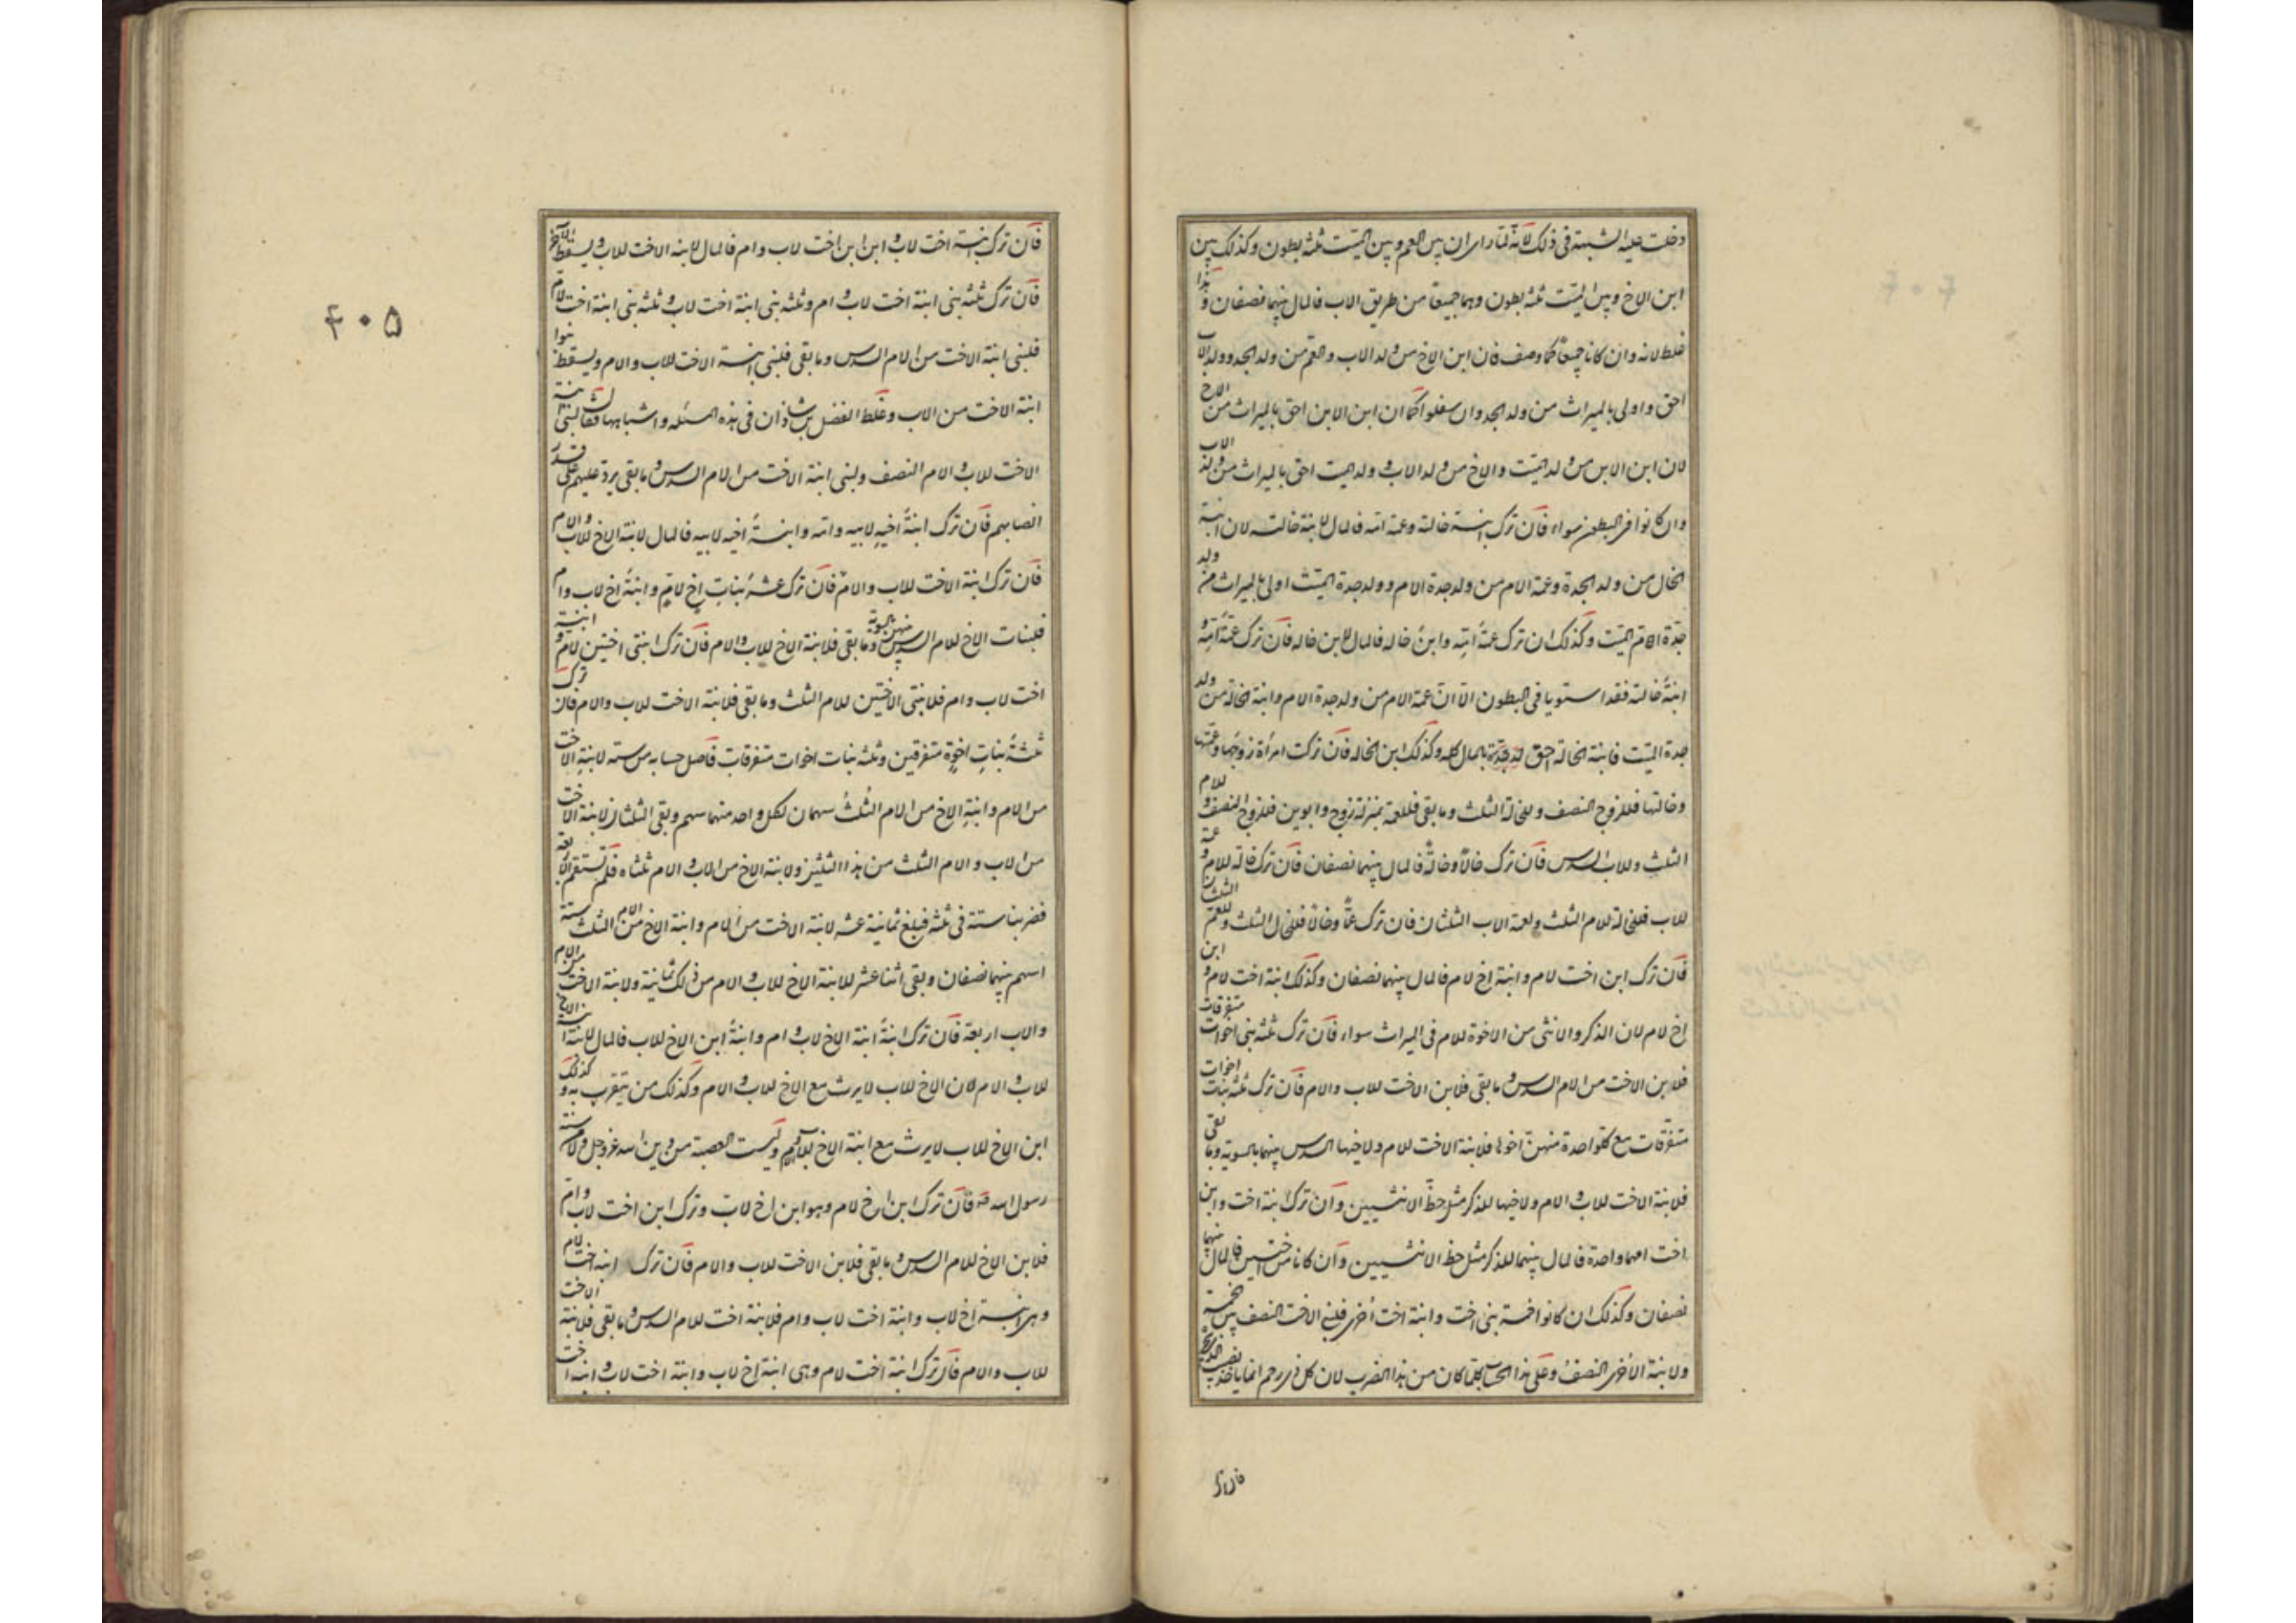 دخلت عليه الشبهة فى ذلك لانه لما راى ان بين العم و بين الميت ثلثة بطون وكذلك بين
ابن الاخ وبين الميت ثلثة بطون وهما جميعا من طريق الاب فالمال بينهما نصفان وهذا
غلط لانه وان كانا جميعا كما وصف فان ابن الاخ من ولد الاب والعم من ولد الجد وولد الاب
احق واولى بالميراث من ولد الجد وان سفلوا كما ان ابن الابن احق بالميراث من الاخ
لان ابن الابن من ولد الميت والاخ من ولد الاب وولد الميت احق بالميراث من ولد الاب
وان كانوا فى البطون سواء فان ترك ابنة خالته وعمة امه فالمال لابنة خالته لان ابنة
الخال من ولد الجدة وعمة الام من ولد جدة الام وولد جدة الميت اولى بالميراث من ولد
جدة ام الميت وكذلك ان ترك عمة امه وابن خاله فالمال لابن خاله فان ترك عمة امه و
ابنة خالته فقد استويا فى البطون الا ان عمة الام من ولد جدة الام وابنة الخالة من ولد
جدة الميت فابنة الخالة احق بالمال كله وكذلك ابن الخالة فان تركت امرأة زوجها وعمتها
وخالتها فللزوج النصف وللخالة الثلث وما بقى فللعمة بمنزلة زوج وابوين فللزوج النصف وللام
الثلث وللاب السدس فان ترك خالا وخالة فالمال بينهما نصفان فان ترك خالة للام وعمة
للاب فللخالة للام الثلث ولعمة الاب الثلثان فان ترك عما وخالا فللخال الثلث وللعم الثلثان
فان ترك ابن اخت لام وابنة اخ لام فالمال بينهما نصفان وكذلك ابنة اخت لام وابن
اخ لام لان الذكر والانثى من الاخوة للام فى الميراث سواء فان ترك ثلثة بنى اخوات متفرقات
فلابن الاخت من الام السدس وما بقى فلابن الاخت للاب والام فان ترك ثلثة بنات اخوات
متفرقات مع كل واحدة منهن اخوها فلابنة الاخت للام ولاخيها السدس بينهما بالسوية وما بقى
فلابنة الاخت للاب والام ولاخيها للذكر مثل حظ الانثيين وان ترك ابنة اخت وابن
اخت امهما واحدة فالمال بينهما للذكر مثل حظ الانثيين وان كانا من اختين فالمال بينهما
نصفان وكذلك ان كانوا خمسة بنى اخت وابنة اخت اخرى فلبنى الاخت النصف بين الخمسة
ولابنة الاخرى النصف وعلى هذا الحساب كلما كان من هذا الضرب لان كل ذى رحم انما ياخذ نصيب
فان ترك
فان ترك ابنة اخت لاب وابن ابن اخت لاب وام فالمال لابنة الاخت للاب ويسقط الاخر
فان ترك ثلثة بنى ابنة اخت لاب وام وثلثة بنى ابنة اخت لاب وثلثة بنى ابنة اخت لام
فلبنى ابنة الاخت من الام السدس وما بقى فلبنى ابنة الاخت للاب والام ويسقط بنوا
ابنة الاخت من الاب وغلط الفضل بن شاذان فى هذه المسئلة واشباهها فقال لبنى ابنة
الاخت للاب والام النصف ولبنى ابنة الاخت من الام السدس وما بقى يرد عليهم على قدر
انصبائهم فان ترك ابنة اخيه لابيه وامه وابنة اخيه لابيه فالمال لابنة الاخ للاب والام
فان ترك ابنة الاخت للاب والام فان ترك عشر بنات اخ لام وابنة اخ لاب وام
فلبنات الاخ للام السدس بينهن بالسوية وما بقى فلابنة الاخ للاب والام فان ترك ابنتى اختين لام وابنة
اخت لاب وام فلابنتى الاختين للام الثلث وما بقى فلابنة الاخت للاب والام فان ترك
ثلثة بنات اخوة متفرقين وثلثة بنات اخوات متفرقات فاصل حسابه من ستة لابنة الاخت
من الام وابنة الاخ من الام الثلث سهمان لكل واحد منهما سهم وبقى الثلثان لابنة الاخت
من الاب والام الثلث من هذا الثلثين ولابنة الاخ من الاب والام ثلثاه فلم تستقم الاربعة
فضربنا ستة فى ثلثة فبلغ ثمانية عشر لابنة الاخت من الام وابنة الاخ من الام الثلث ستة
اسهم بينهما نصفان وبقى اثنا عشر للابنة الاخ للاب والام من ذلك ثمانية ولابنة الاخت من الام
والاب اربعة فان ترك ابنة ابنة الاخ لاب وام وابنة ابن الاخ للاب فالمال لابنة ابنة الاخ
للاب والام لان الاخ للاب لا يرث مع الاخ للاب والام وكذلك من يتقرب به وكذلك
ابن الاخ للاب لا يرث مع ابنة الاخ للاب والام وليست العصبة من دين الله عز وجل ولا من سنة
رسول الله ص فان ترك ابن اخ لام وهو ابن اخ لاب وترك ابن اخت لاب وام
فلابن الاخ للام السدس وما بقى فلابن الاخت للاب والام فان ترك ابنة اخت لام
وهى ابنة اخ لاب وابنة اخت لاب وام فلابنة اخت للام السدس وما بقى فلابنة الاخت
للاب والام فان ترك ابنة اخت لام وهى ابنة اخ لاب وابنة اخت لاب وابنة اخت
۴۰۵